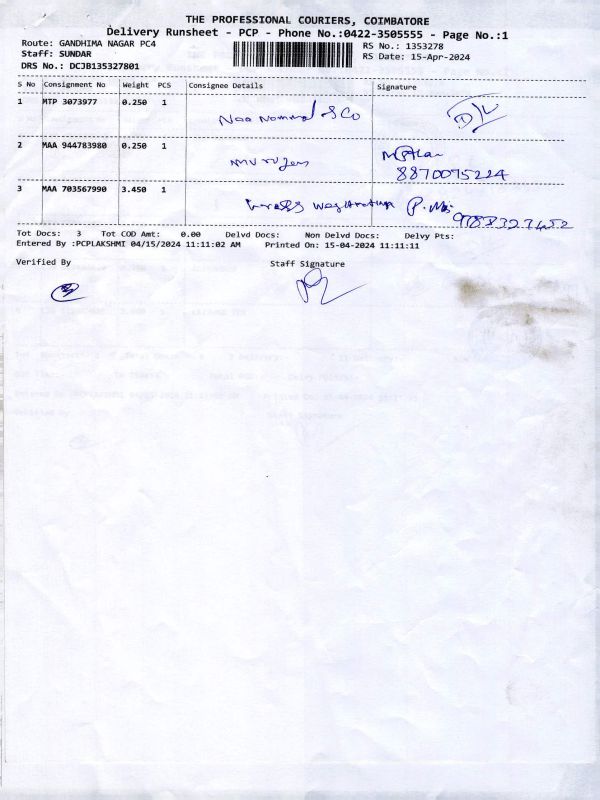 THE PROFESSIONAL COURIERS, COIMBATORE
Delivery Runsheet - PCP - Phone No.:0422-3505555 - Page No.:1
Route: GANDHIMA NAGAR PC4
RS No.: 1353278
Staff: SUNDAR
RS Date: 15-Apr-2024
DRS No.: DCJB135327801
S No Consignment No Weight PCS Consignee Details Signature
1 MTP 3073977 0.250 1
2 MAA 944783980 0.250 1 murugan
8870075224
3 MAA 703567990 3.450 1
Tot Docs: 3 Tot COD Amt: 0.00 Delvd Docs: Non Delvd Docs: Delvy Pts:
Entered By :PCPLAKSHMI 04/15/2024 11:11:02 AM Printed On: 15-04-2024 11:11:11
Verified By Staff Signature